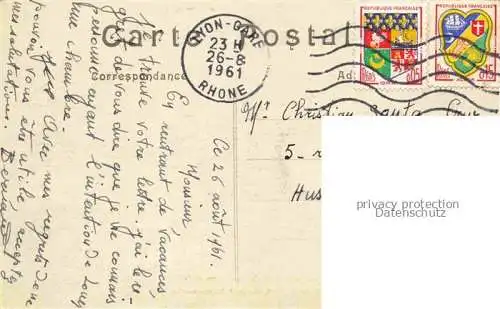 Carte Postale
Correspondance
Ad
LYON-GARE
23 H
26-8
1961
RHONE
REPUBLIQUE FRANÇAISE
0,05
REPUBLIQUE FRANÇAISE
0,15
Ce 26 août 1961.
Monsieur
En rentrant de vacances,
je trouve votre lettre. J'ai le re-
gret de vous dire que je ne connais
personne ayant l'intention de louer
une chambre.
Avec mes regrets de ne
pouvoir vous être utile, acceptez
mes salutations.
Mr Christian
5 - r
Hus
privacy protection
Datenschutz